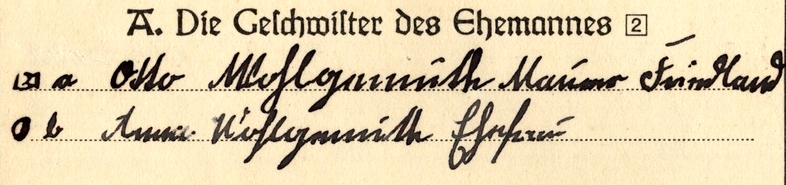 A. Die Geschwister des Ehemannes 2
a Otto Wohlgemuth Maurer Friedland
b Anna Wohlgemuth Ehefrau